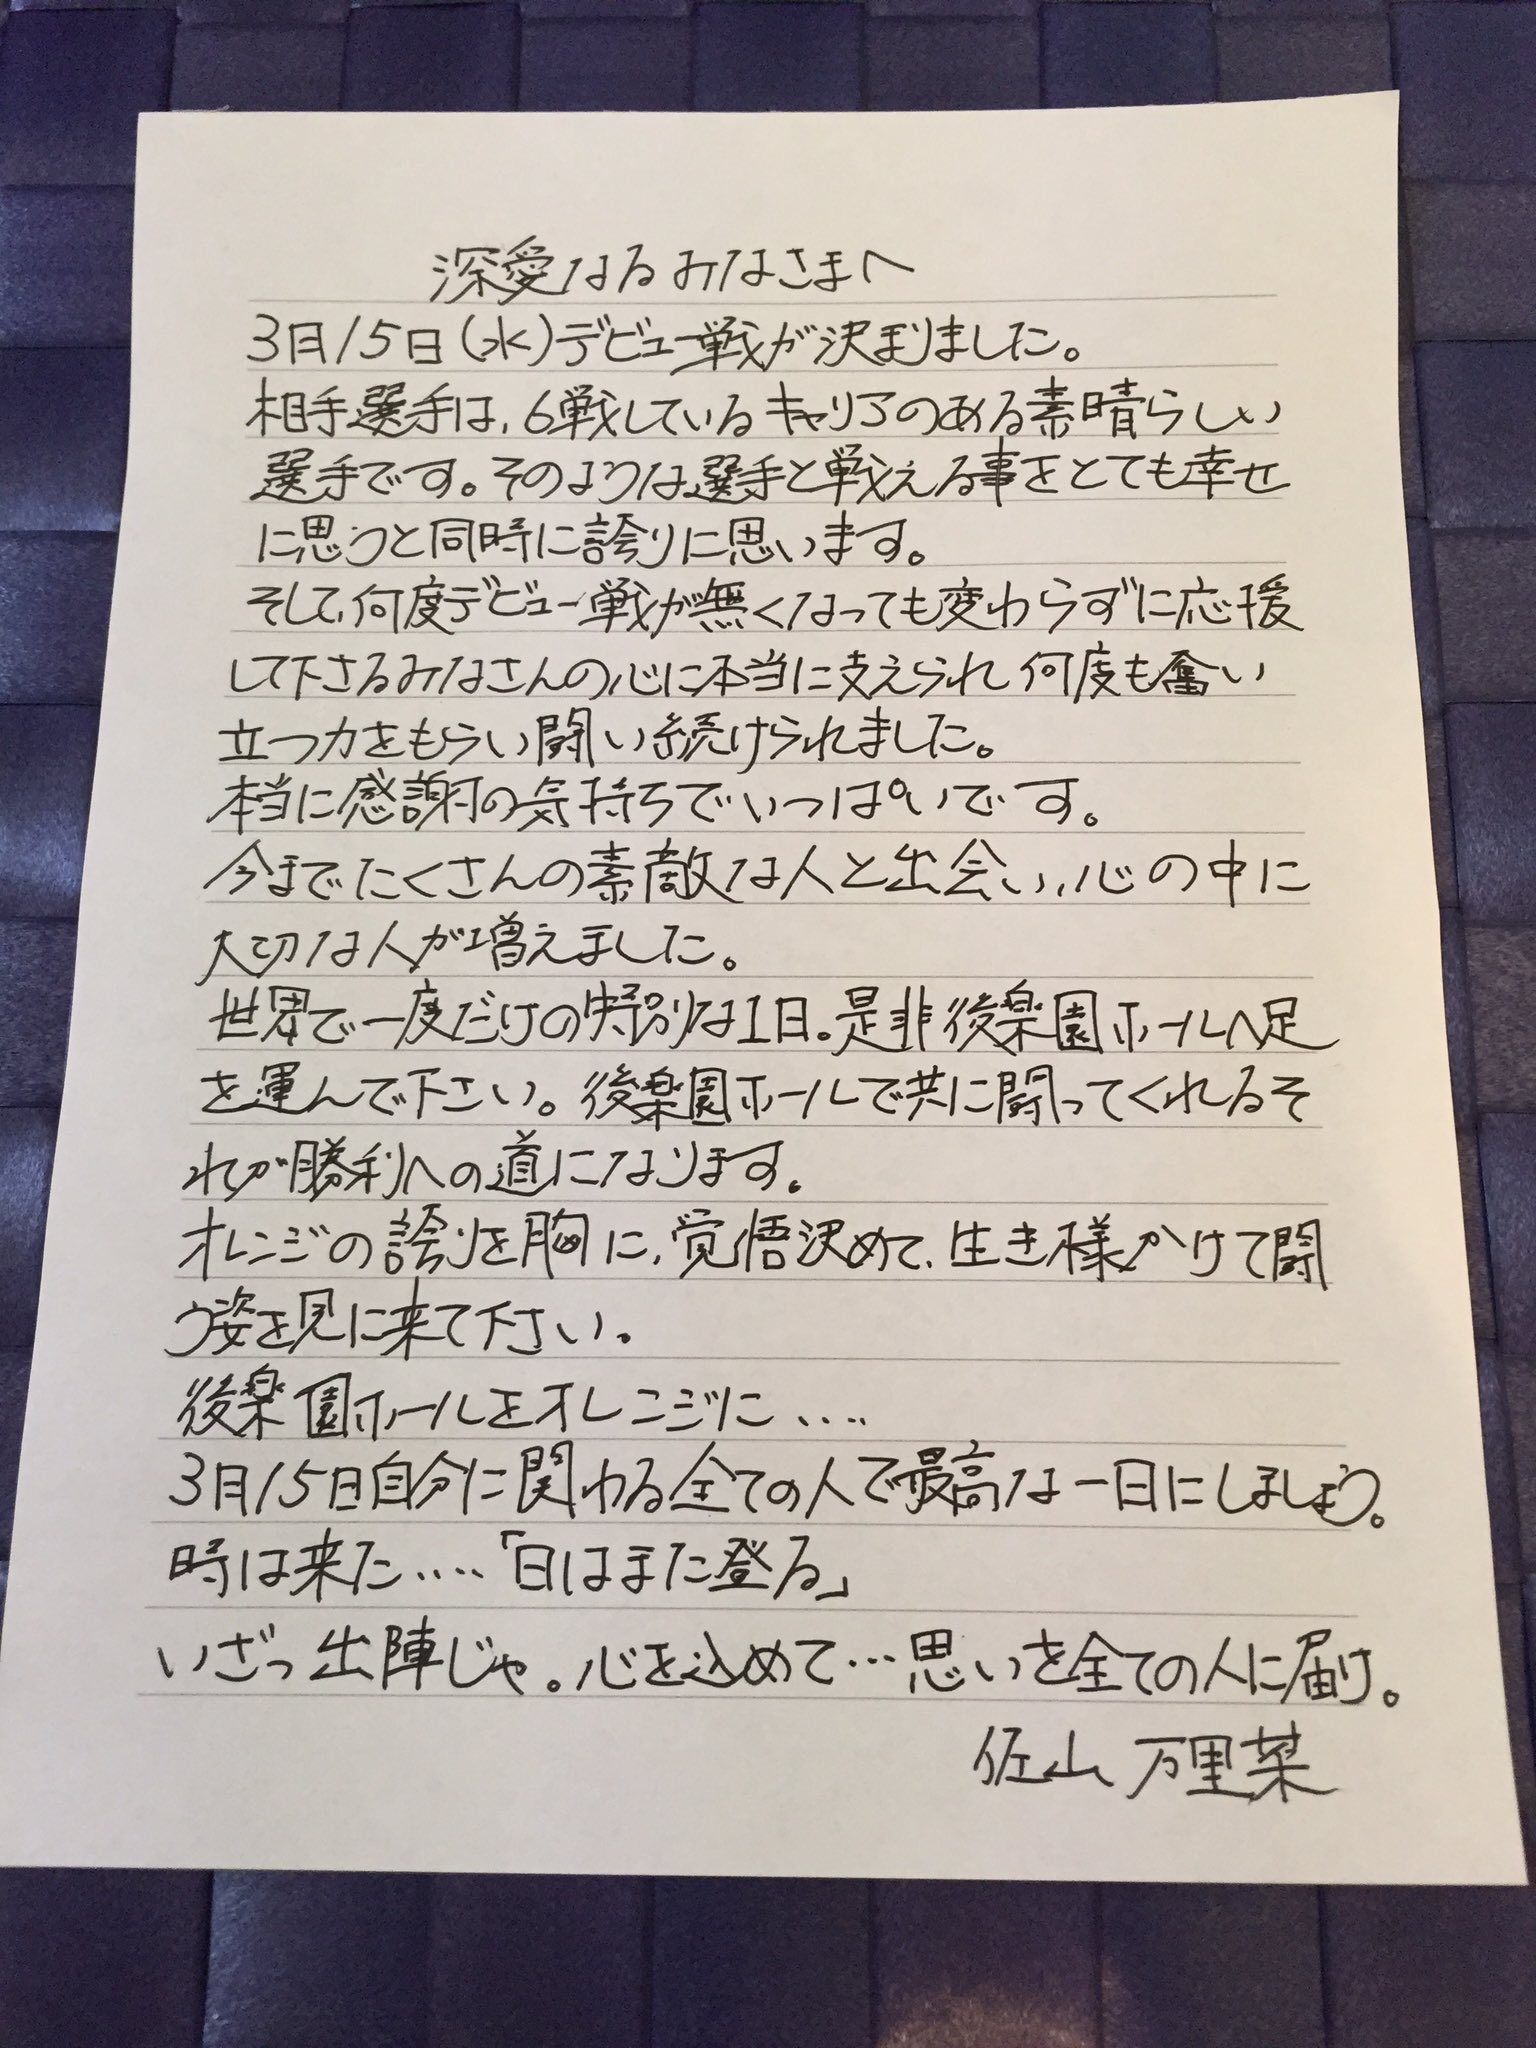 深愛なるみなさまへ
3月15日(水)デビュー戦が決まりました。
相手選手は、6戦しているキャリアのある素晴らしい
選手です。そのような選手と戦える事をとても幸せ
に思うと同時に誇りに思います。
そして、何度デビュー戦が無くなっても変わらずに応援
して下さるみなさんの心に本当に支えられ何度も奮い
立つ力をもらい闘い続けられました。
本当に感謝の気持ちでいっぱいです。
今までたくさんの素敵な人と出会い、心の中に
大切な人が増えました。
世界で一度だけの特別な1日。是非後楽園ホールへ足
を運んで下さい。後楽園ホールで共に闘ってくれるそ
れが勝利への道になります。
オレンジの誇りを胸に、覚悟決めて、生き様かけて闘
う姿を見に来て下さい。
後楽園ホールをオレンジに....
3月15日自分に関わる全ての人で最高な一日にしましょう。
時は来た....「日はまた登る」
いざっ出陣じゃ。心を込めて...思いを全ての人に届け。
佐山 万里菜